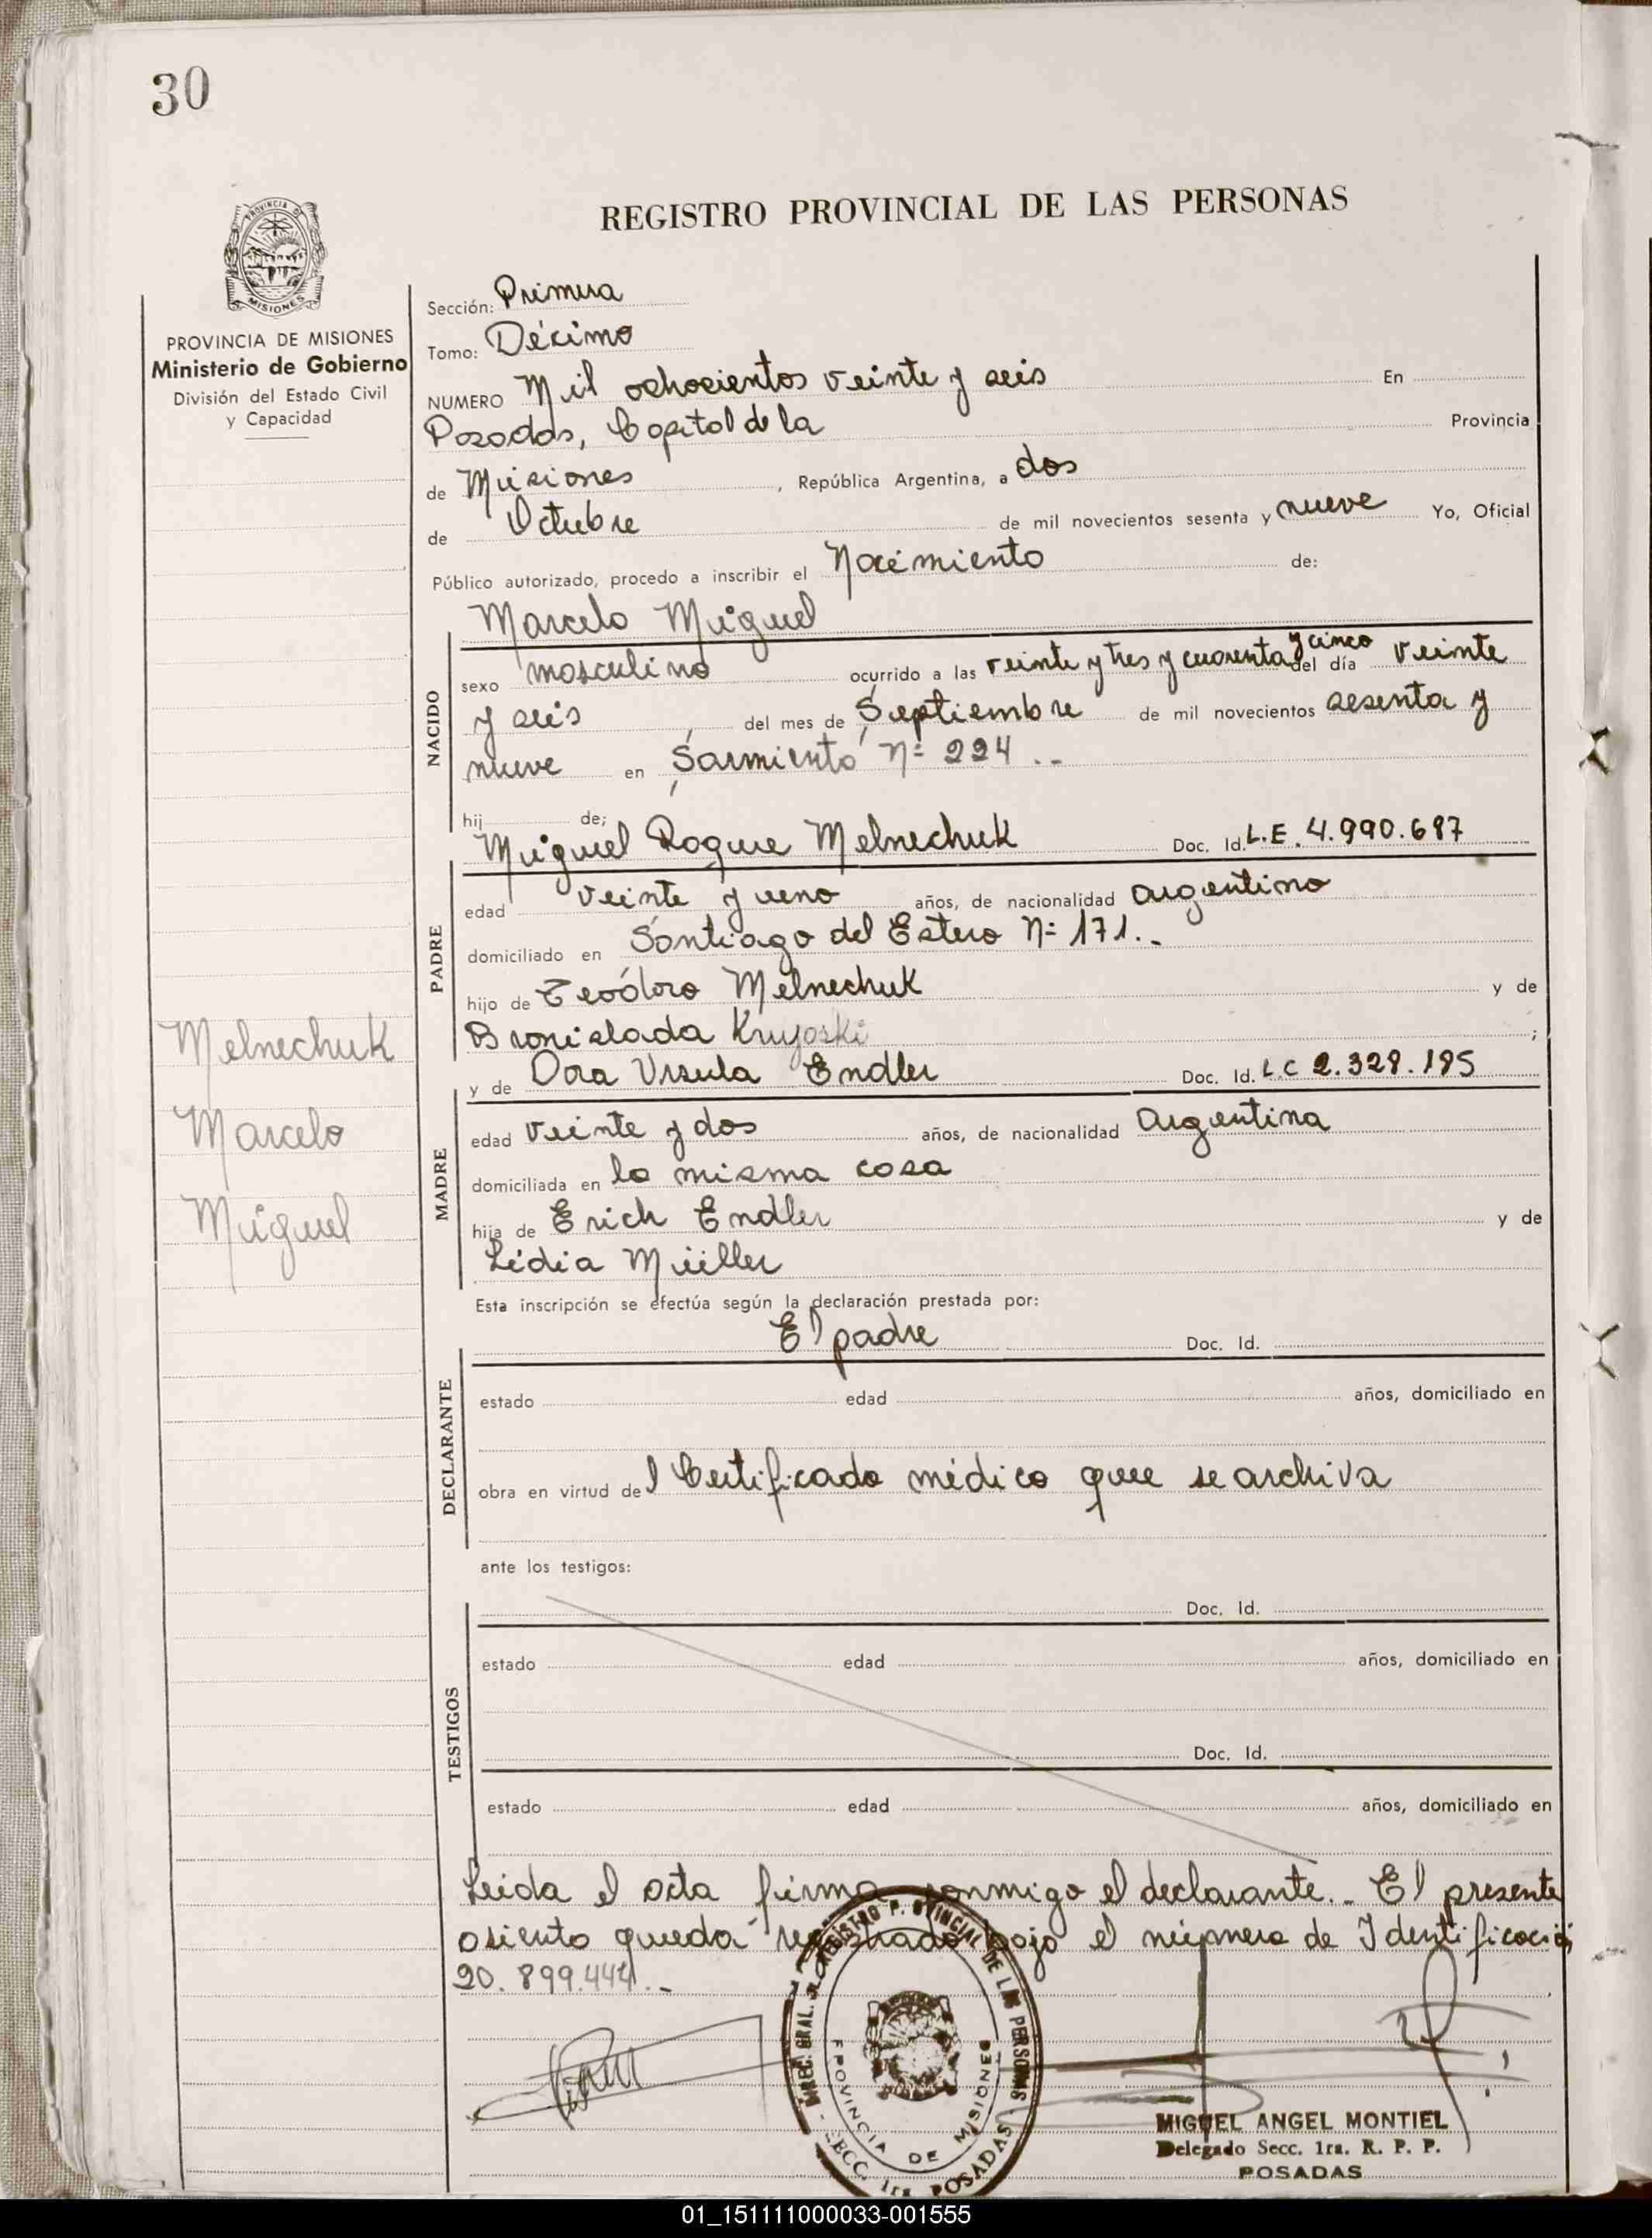 30
REGISTRO PROVINCIAL DE LAS PERSONAS
PROVINCIA DE MISIONES
PROVINCIA DE MISIONES
Ministerio de Gobierno
División del Estado Civil
y Capacidad
Sección: Primera
Tomo: Décimo
NUMERO Mil ochocientos veinte y seis En
Posadas, Capital de la Provincia
de Misiones, República Argentina, a dos
de Octubre de mil novecientos sesenta y nueve Yo, Oficial
Público autorizado, procedo a inscribir el Nacimiento de:
Marcelo Miguel
NACIDO
sexo masculino ocurrido a las veinte y tres y cuarenta y cinco del día veinte
y seis del mes de Septiembre de mil novecientos sesenta y
nueve en Sarmiento Nº 224.-
hij de;
Miguel Roque Melnechuk Doc. Id. L.E. 4.990.687
PADRE
edad veinte y uno años, de nacionalidad argentino
domiciliado en Santiago del Estero Nº 171.-
hijo de Teodoro Melnechuk y de
Bronislada ;
y de Dora Ursula Endler Doc. Id. L.C 2.328.195
MADRE
edad veinte y dos años, de nacionalidad argentina
domiciliada en la misma casa
hija de Erich Endler y de
Lidia Müller
Melnechuk
Marcelo
Miguel
Esta inscripción se efectúa según la declaración prestada por:
El padre Doc. Id.
DECLARANTE
estado edad años, domiciliado en
obra en virtud del Certificado médico que se archiva
ante los testigos:
Doc. Id.
TESTIGOS
estado edad años, domiciliado en
Doc. Id.
estado edad años, domiciliado en
Leida el acta firma conmigo el declarante.- El presente
asiento queda registrado bajo el número de Identificación
20.899.444.-
DIREC. GRAL. DEL REGISTRO PROVINCIAL DE LAS PERSONAS
PROVINCIA DE MISIONES
SECC. 1ra POSADAS
MIGUEL ANGEL MONTIEL
Delegado Secc. 1ra. R. P. P.
POSADAS
01_151111000033-001555